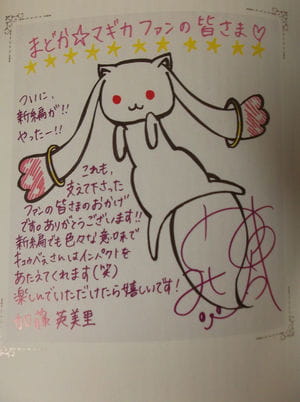 まどか☆マギカ ファンの皆さま♡
ついに、
新編が!!
やったー!!
これも、
支えて下さった
ファンの皆さまのおかげ
です。ありがとうございます!!
新編でも色々な意味で
キュゥべえさんはインパクトを
あたえてくれます(笑)
楽しんでいただけたら嬉しいです!
加藤 英美里